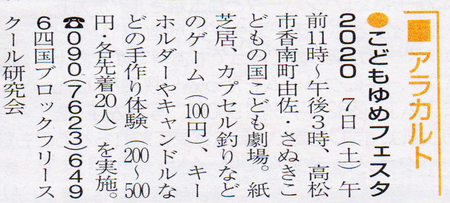 アラカルト
●こどもゆめフェスタ
2020　7日（土）午
前11時～午後3時、高松
市香南町由佐・さぬきこ
どもの国こども劇場。紙
芝居、カプセル釣りなど
のゲーム（100円）、キー
ホルダーやキャンドルな
どの手作り体験（200～500
円・各先着20人）を実施。
☎090(7623)649
6四国ブロックフリース
クール研究会